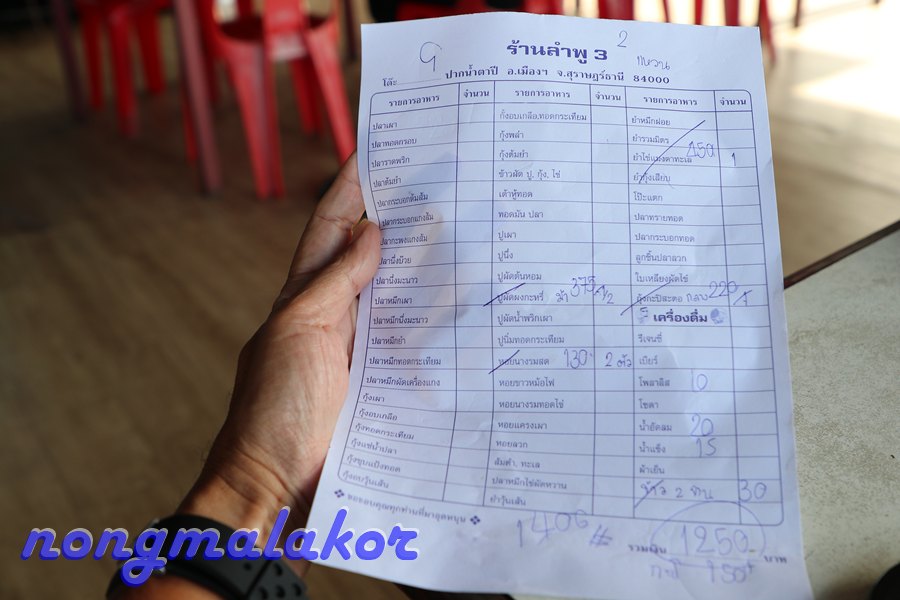 2
ร้านลำพู 3 แหวน
โต๊ะ 9 ปากน้ำตาปี อ.เมืองฯ จ.สุราษฎร์ธานี 84000
รายการอาหาร จำนวน รายการอาหาร จำนวน รายการอาหาร จำนวน
ปลาเผา กุ้งอบเกลือ,ทอดกระเทียม ยำหมึกฝอย
ปลาทอดกรอบ กุ้งพล่า ยำรวมมิตร
ปลาราดพริก กุ้งต้มยำ ยำไข่แมงดาทะเล 150 1
ปลาต้มยำ ข้าวผัด ปู, กุ้ง, ไข่ ยำกุ้งเสียบ
ปลากระบอกต้มส้ม เต้าหู้ทอด โป๊ะแตก
ปลากระบอกแกงส้ม ทอดมัน ปลา ปลาทรายทอด
ปลากะพงแกงส้ม ปูเผา ปลากระบอกทอด
ปลานึ่งบ๊วย ปูนึ่ง ลูกชิ้นปลาลวก
ปลานึ่งมะนาว ปูผัดต้นหอม ใบเหลียงผัดไข่
ปลาหมึกเผา ปูผัดผงกะหรี่ 375 กุ้งกะปิสะตอ กลาง 220 1
ปลาหมึกนึ่งมะนาว ปูผัดน้ำพริกเผา เครื่องดื่ม
ปลาหมึกยำ ปูนิ่มทอดกระเทียม รีเจนซี่
ปลาหมึกทอดกระเทียม หอยนางรมสด 130 2 ตัว เบียร์
ปลาหมึกผัดเครื่องแกง หอยขาวหม้อไฟ โพลาลิส 10
กุ้งเผา หอยนางรมทอดไข่ โซดา
กุ้งอบเกลือ หอยแครงเผา น้ำอัดลม 20
กุ้งทอดกระเทียม หอยลวก น้ำแข็ง 15
กุ้งแช่น้ำปลา ส้มตำ, ทะเล ผ้าเย็น
กุ้งชุบแป้งทอด ปลาหมึกไข่ผัดหวาน ข้าว 2 จาน 30
กุ้งอบวุ้นเส้น ยำวุ้นเส้น
ขอขอบคุณทุกท่านที่มาอุดหนุน 1400 รวมเงิน 1250 บาท
150
nongmalakor